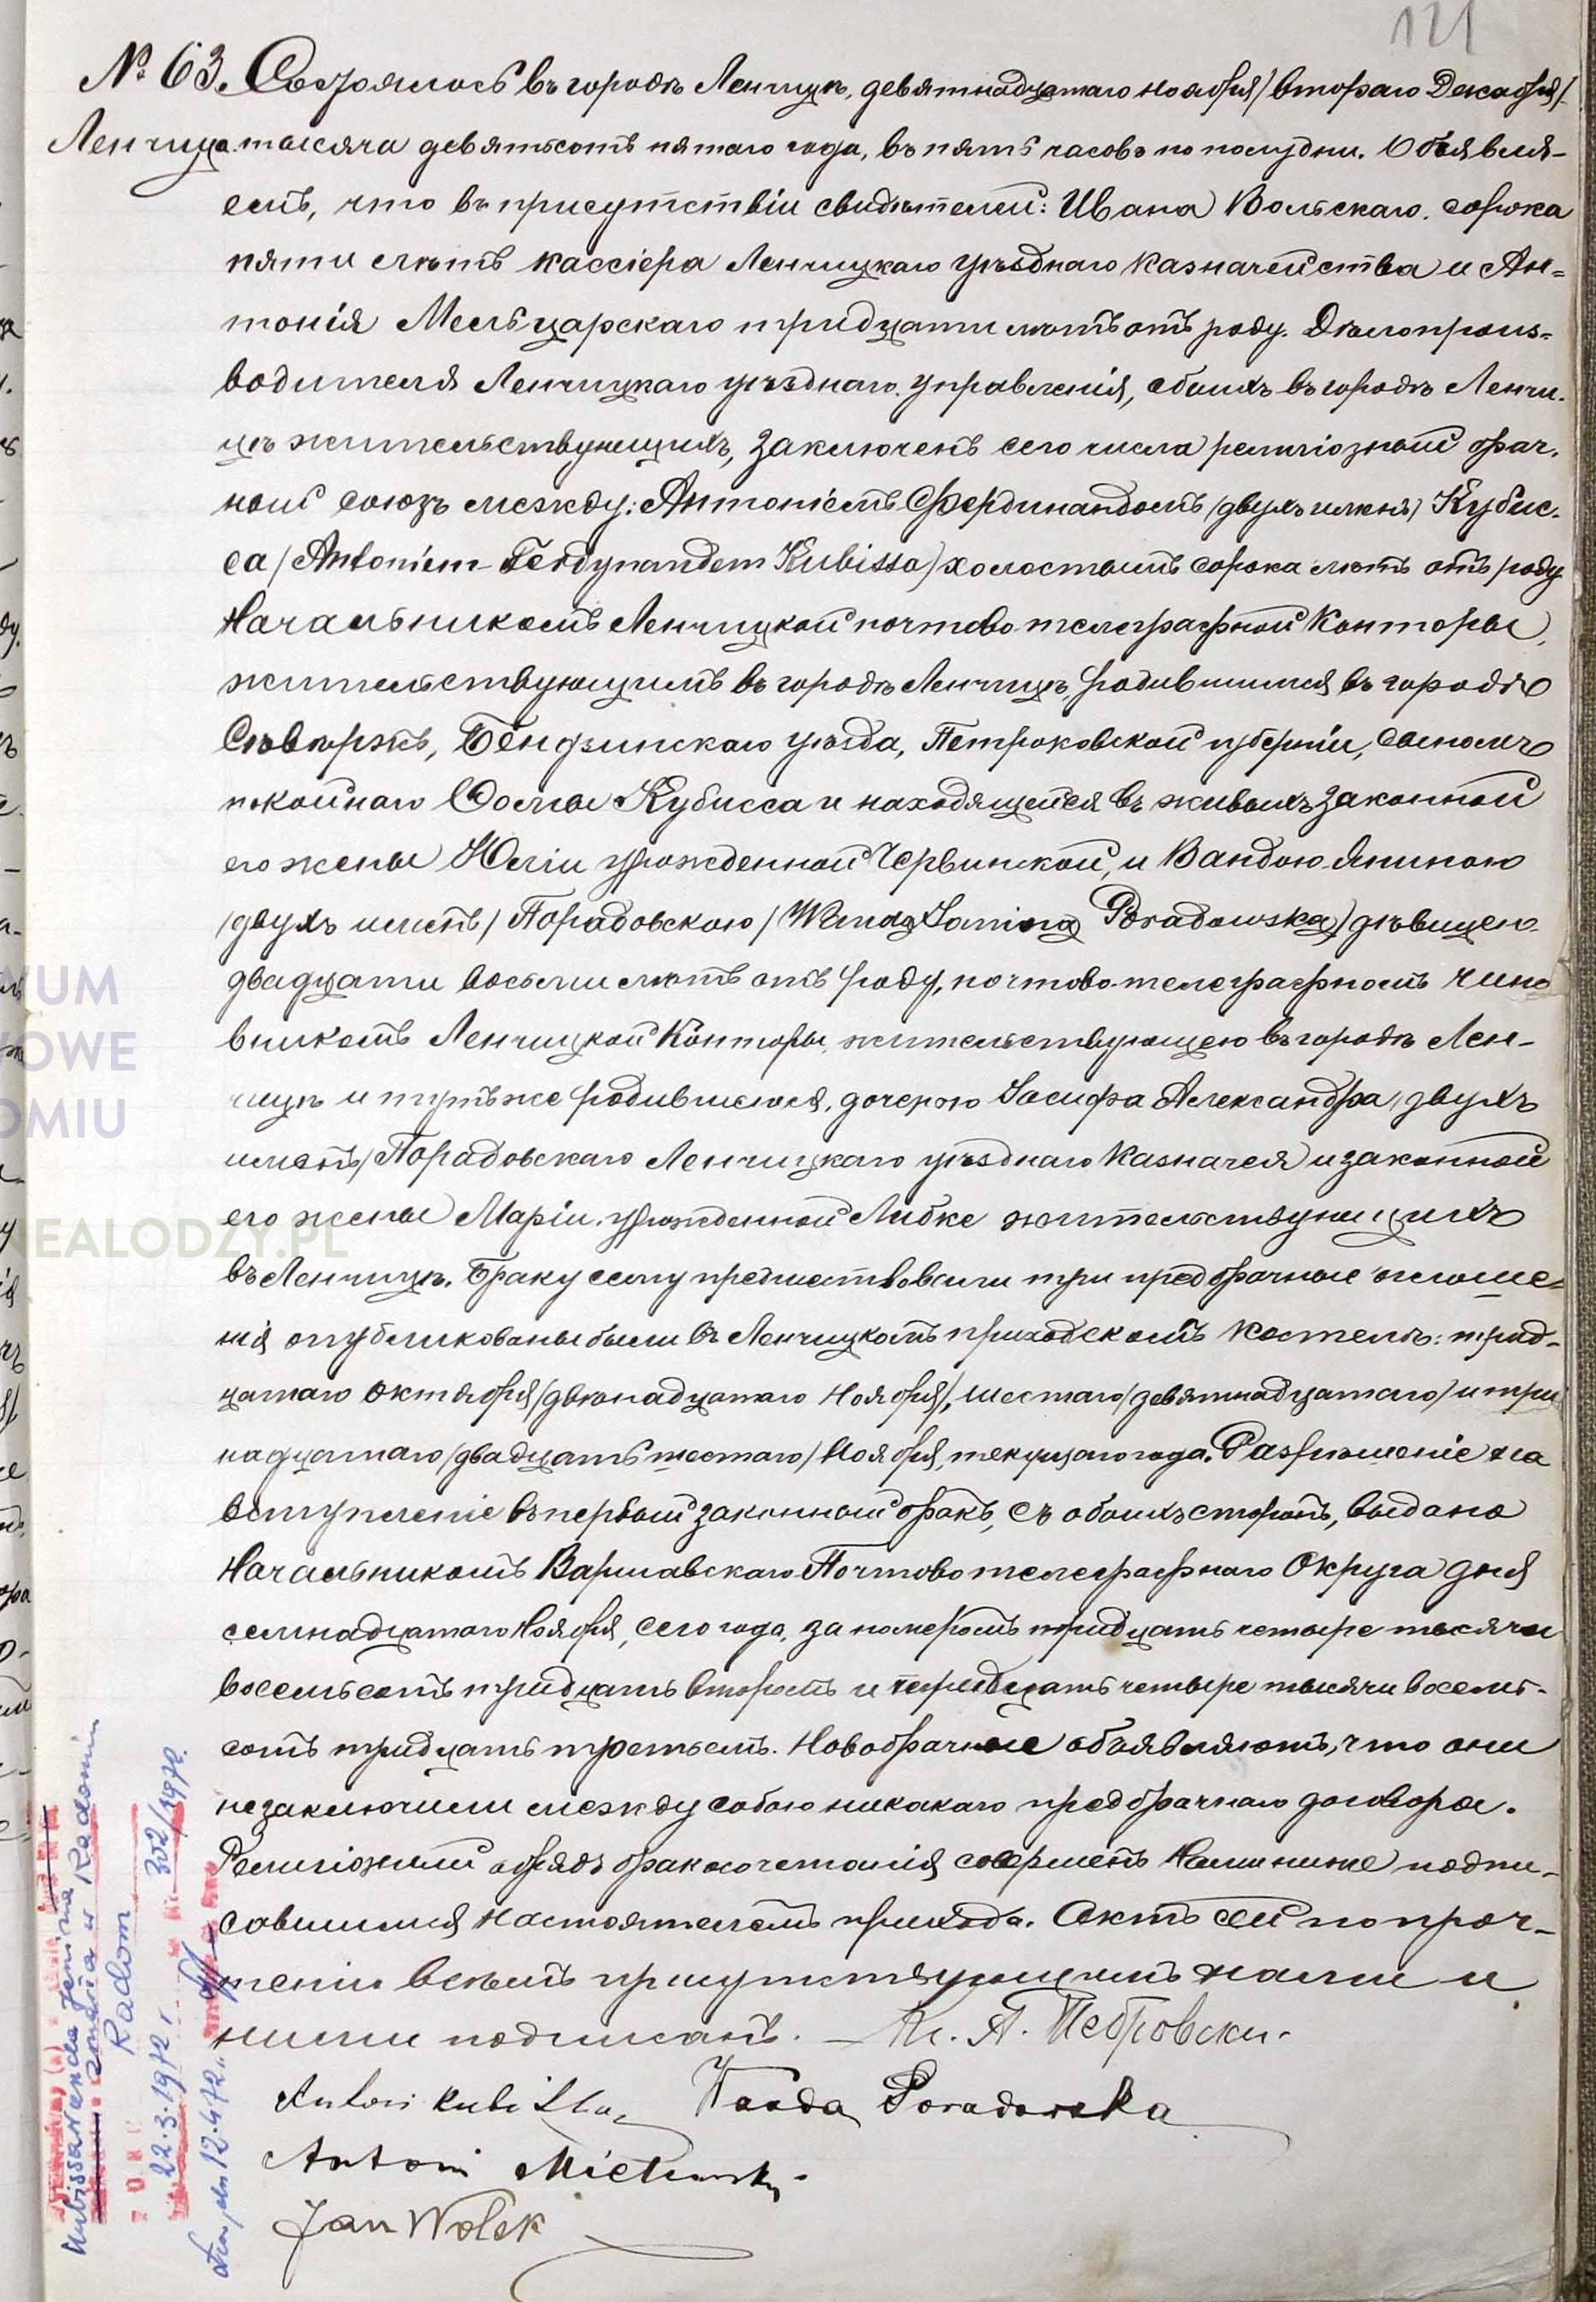 121
№ 63. Состоялось въ городѣ Ленчицѣ, девятнадцатаго Ноября / втораго Декабря /
Ленчица тысяча девятьсотъ пятаго года, въ пять часовъ по полудни. Объявля-
емъ, что въ присутствіи свидѣтелей: Ивана Вольскаго сорока
пяти лѣтъ кассіера Ленчицкаго уѣзднаго казначейства и Ан=
тонія Мельцарскаго тридцати лѣтъ отъ роду. Дѣлопроиз=
водителя Ленчицкаго уѣзднаго управленія, обоихъ въ городѣ Ленчи-
цѣ жительствующихъ, заключенъ сего числа религіозный брач-
ный союзъ между: Антоніемъ Фердинандомъ /двухъ именъ/ Кубис-
са / Antoniem Ferdynandem Kubissa / холостымъ сорока лѣтъ отъ роду
Начальникомъ Ленчицкой почтово телеграфной Конторы,
жительствующимъ въ городѣ Ленчицѣ, родившимся въ городѣ
Сѣвѣржѣ, Бендзинскаго уѣзда, Петроковской губерніи, сыномъ
покойнаго Фомы Кубисса и находящейся въ живыхъ законной
его жены Юліи урожденной Червинской, и Вандою Яниною
/двухъ именъ/ Порадовскою / Wanda Janina Poradowska / дѣвицею
двадцати восьми лѣтъ отъ роду, почтово-телеграфномъ чино
вникомъ Ленчицкой Конторы, жительствующею въ городѣ Лен-
чицѣ и тутъ же родившеюся, дочерью Іосифа Александра /двухъ
именъ/ Порадовскаго Ленчицкаго уѣзднаго Казначея и законной
его жены Маріи, урожденной Либке жительствующихъ
въ Ленчицѣ. Браку сему предшествовали три предбрачные оглаше=
нія опубликованы были въ Ленчицкомъ приходскомъ костелѣ: трид-
цатаго Октября /двѣнадцатаго Ноября/, шестаго /девятнадцатаго/ и три
надцатаго /двадцать шестаго/ Ноября, текущаго года. Разрѣшеніе на
вступленіе въ первый законный бракъ, съ обоихъ сторонъ, выдано
Начальникомъ Варшавскаго Почтово телеграфнаго Округа дня
семнадцатаго Ноября, сего года, за номеромъ тридцать четыре тысячи
восемьсотъ тридцать вторымъ и тридцать четыре тысячи восемь-
сотъ тридцать третьемъ. Новобрачные объявляютъ, что они
незаключили между собою никакаго предбрачнаго договора.
Религіозный обрядъ бракосочетанія совершенъ нами ниже подпи-
савшимся настоятелемъ прихода. Актъ сей по проч-
теніи всѣмъ присутствующимъ нами и
ними подписанъ. – Кс. А.
Antoni Kubissa Wanda Poradowska
Antoni
Jan Wolsk
Kubissa Wanda Janina
zmarła w Radomiu
Radom
22.3.1972 r. 302/1972.
12.4.72
NUM
KOWE
OMIU
NEALODZY.PL